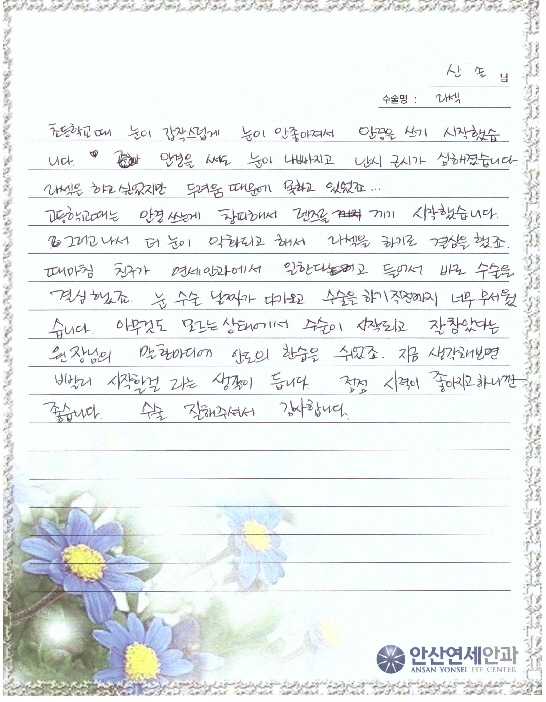 신 솔 님
수술명 : 라섹
초등학교때 눈이 갑작스럽게 눈이 안좋아져서 안경을 쓰기 시작했습
니다. 안경을 써도 눈이 나빠지고 난시 근시가 심해졌습니다
라섹은 하고 싶었지만 두려움 때문에 못하고 있었죠...
고등학교때는 안경 쓰는게 창피해서 렌즈를 끼기 시작했습니다.
그리고나서 더 눈이 악화되고 해서 라섹을 하기로 결심을 했죠.
때마침 친구가 연세안과에서 일한다고 들어서 바로 수술을
결심했죠. 눈 수술 날짜가 다가오고 수술을 하기 직전까지 너무 무서웠
습니다. 아무것도 모르는 상태에서 수술이 시작되고 잘 참았다는
원장님의 말 한마디에 안도의 한숨을 쉬었죠. 지금 생각해보면
빨리 시작할걸 라는 생각이 듭니다. 점점 시력이 좋아지고 하니깐
좋습니다. 수술 잘해주셔서 감사합니다.
안산연세안과
ANSAN YONSEI EYE CENTER